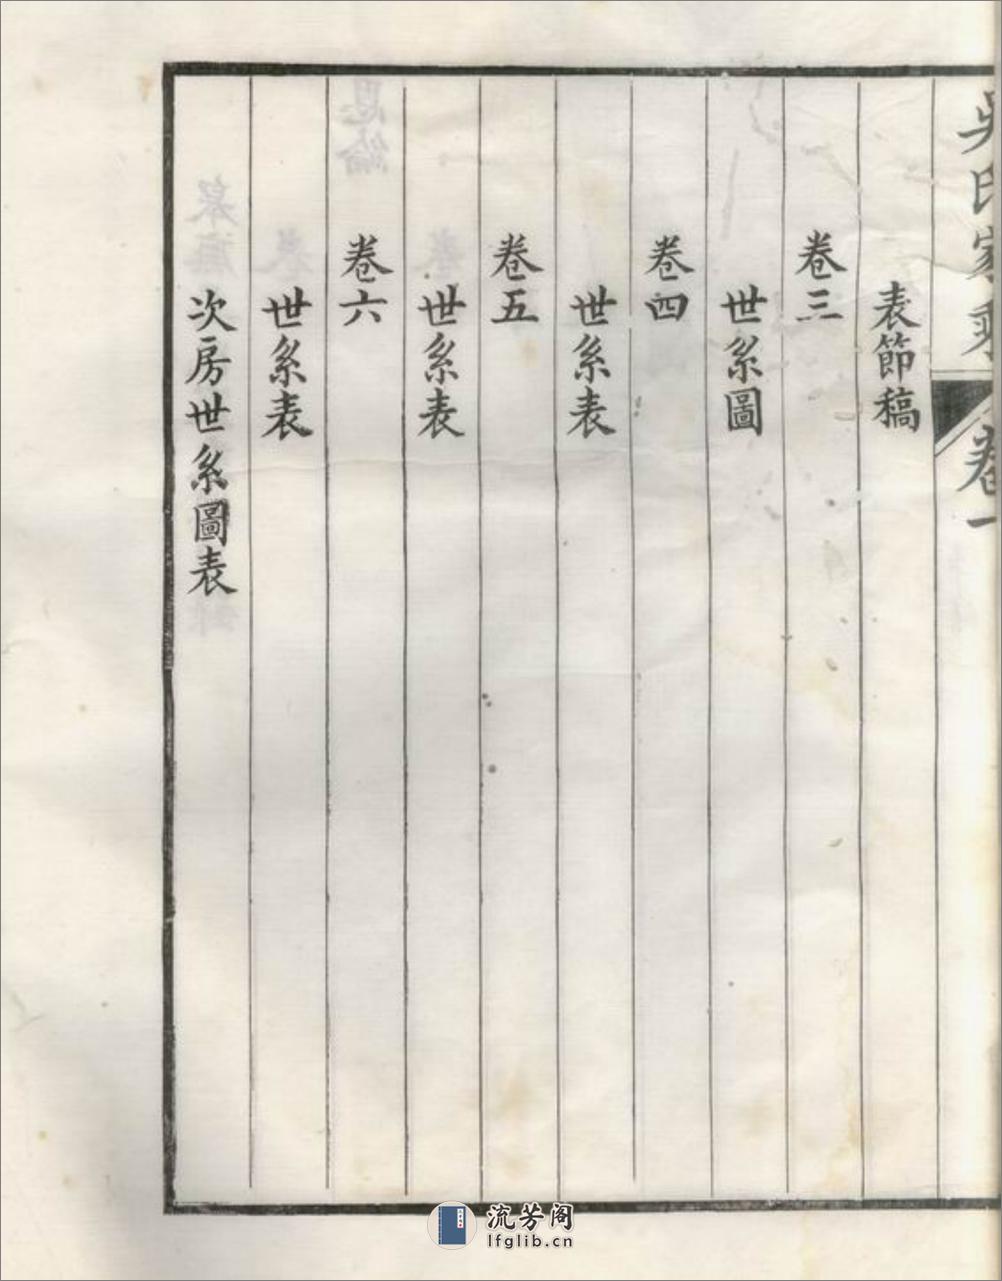 吳氏家乘 卷一
表節稿
卷三
世系圖
卷四
世系表
卷五
世系表
卷六
世系表
次房世系圖表
流芳阁
lfglib.cn